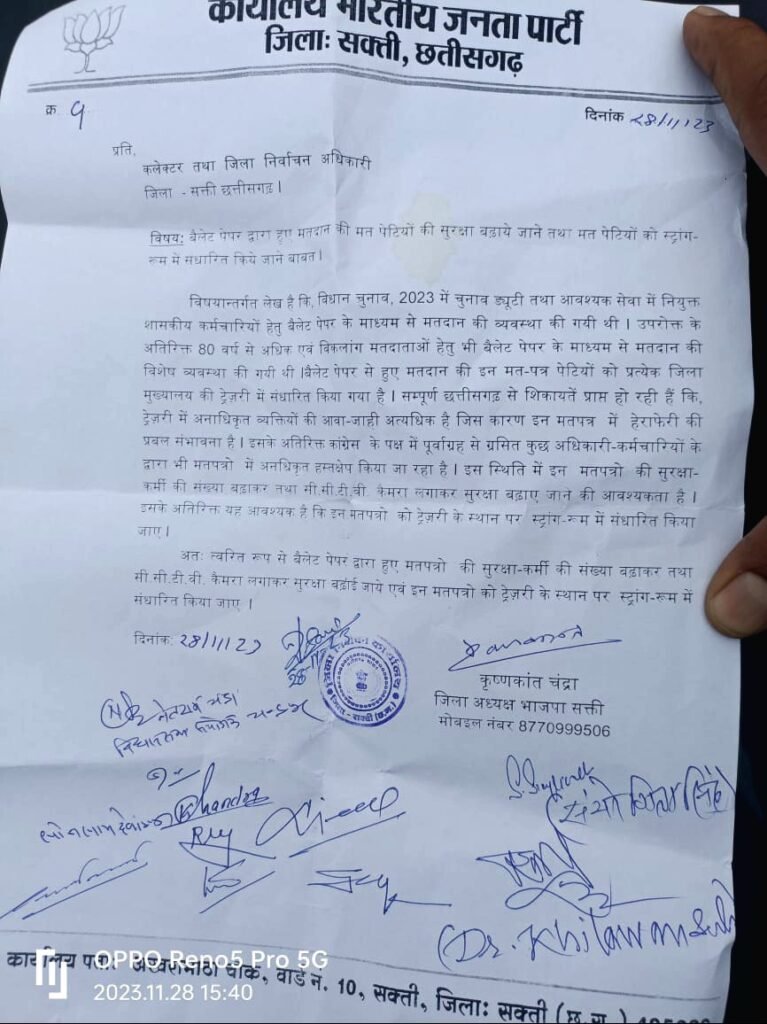 कार्यालय भारतीय जनता पार्टी
जिलाः सक्ती, छत्तीसगढ़
क्र. 9
दिनांक 28/11/23
प्रति,
कलेक्टर तथा जिला निर्वाचन अधिकारी
जिला - सक्ती छत्तीसगढ़ ।
विषय: बैलेट पेपर द्वारा हुए मतदान की मत पेटियों की सुरक्षा बढ़ाये जाने तथा मत पेटियों को स्ट्रांग-
रूम में संधारित किये जाने बाबत ।
विषयान्तर्गत लेख है कि, विधान चुनाव, 2023 में चुनाव ड्यूटी तथा आवश्यक सेवा में नियुक्त
शासकीय कर्मचारियों हेतु बैलेट पेपर के माध्यम से मतदान की व्यवस्था की गयी थी । उपरोक्त के
अतिरिक्त 80 वर्ष से अधिक एवं विकलांग मतदाताओं हेतु भी बैलेट पेपर के माध्यम से मतदान की
विशेष व्यवस्था की गयी थी ।बैलेट पेपर से हुए मतदान की इन मत-पत्र पेटियों को प्रत्येक जिला
मुख्यालय की ट्रेज़री में संधारित किया गया है । सम्पूर्ण छत्तीसगढ़ से शिकायतें प्राप्त हो रही हैं कि,
ट्रेज़री में अनाधिकृत व्यक्तियों की आवा-जाही अत्यधिक है जिस कारण इन मतपत्र में हेराफेरी की
प्रबल संभावना है । इसके अतिरिक्त कांग्रेस के पक्ष में पूर्वाग्रह से ग्रसित कुछ अधिकारी-कर्मचारियों के
द्वारा भी मतपत्रो में अनधिकृत हस्तक्षेप किया जा रहा है । इस स्थिति में इन मतपत्रो की सुरक्षा-
कर्मी की संख्या बढ़ाकर तथा सी.सी.टी.वी. कैमरा लगाकर सुरक्षा बढ़ाए जाने की आवश्यकता है ।
इसके अतिरिक्त यह आवश्यक है कि इन मतपत्रो को ट्रेज़री के स्थान पर स्ट्रांग-रूम में संधारित किया
जाए ।
अतः त्वरित रूप से बैलेट पेपर द्वारा हुए मतपत्रो की सुरक्षा-कर्मी की संख्या बढ़ाकर तथा
सी.सी.टी.वी. कैमरा लगाकर सुरक्षा बढ़ाई जाये एवं इन मतपत्रो को ट्रेज़री के स्थान पर स्ट्रांग-रूम में
संधारित किया जाए ।
दिनांक: 28/11/23
कृष्णकांत चंद्रा
जिला अध्यक्ष भाजपा सक्ती
मोबइल नंबर 8770999506
जिला निर्वाचन कार्यालय
जिला - सक्ती (छ.ग.)
Chandra
(Dr. Khilawan
कार्यालय पता
चौक, वार्ड नं. 10, सक्ती, जिलाः सक्ती (छ.ग.)
OPPO Reno5 Pro 5G
2023.11.28 15:40